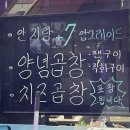 · 안지랑 +7 업그레이드
양념곱창 팬구이
직화구이
치즈곱창 포장
됩니다